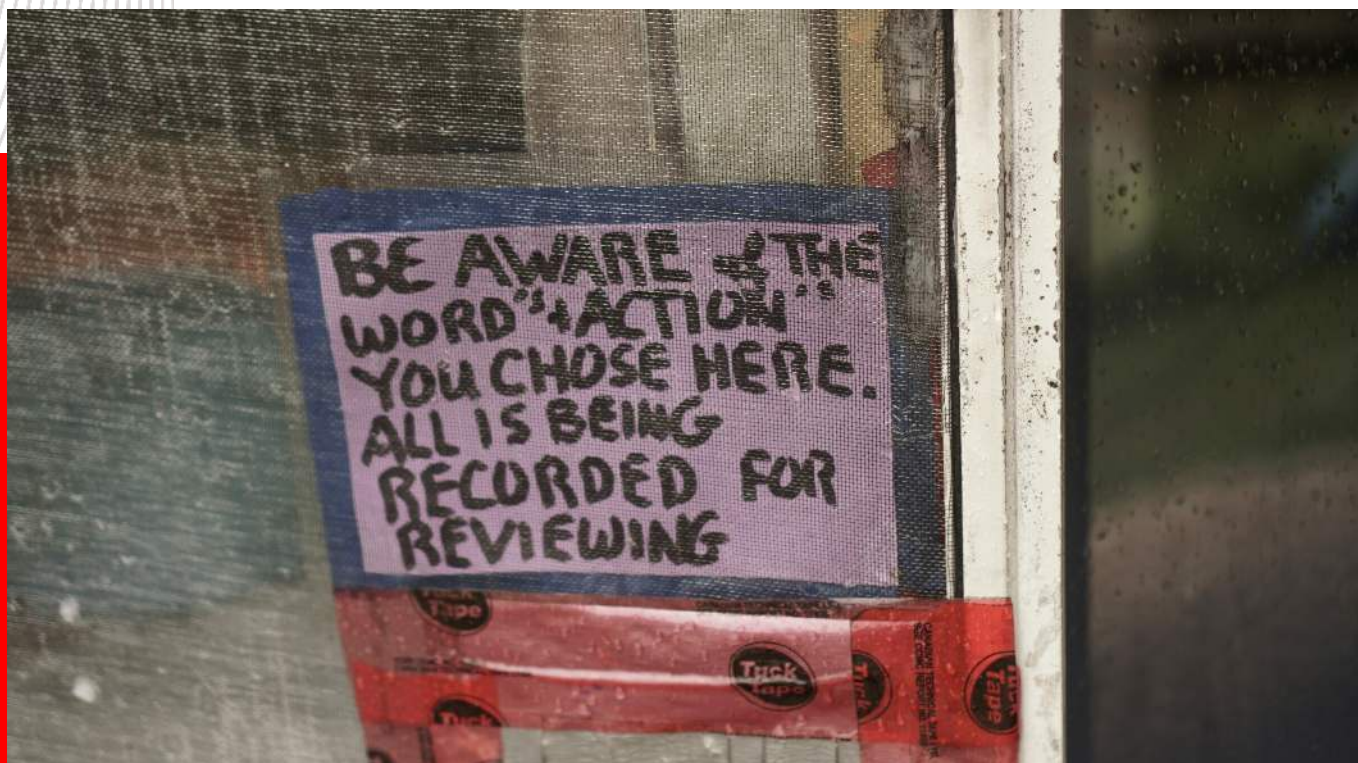 BE AWARE of THE
WORD"s+ACTION"s
YOU CHOSE HERE.
ALL IS BEING
RECORDED FOR
REVIEWING
Tuck
Tape
Tuck
Tape
Tuck
Tuck
Tape
Tuck